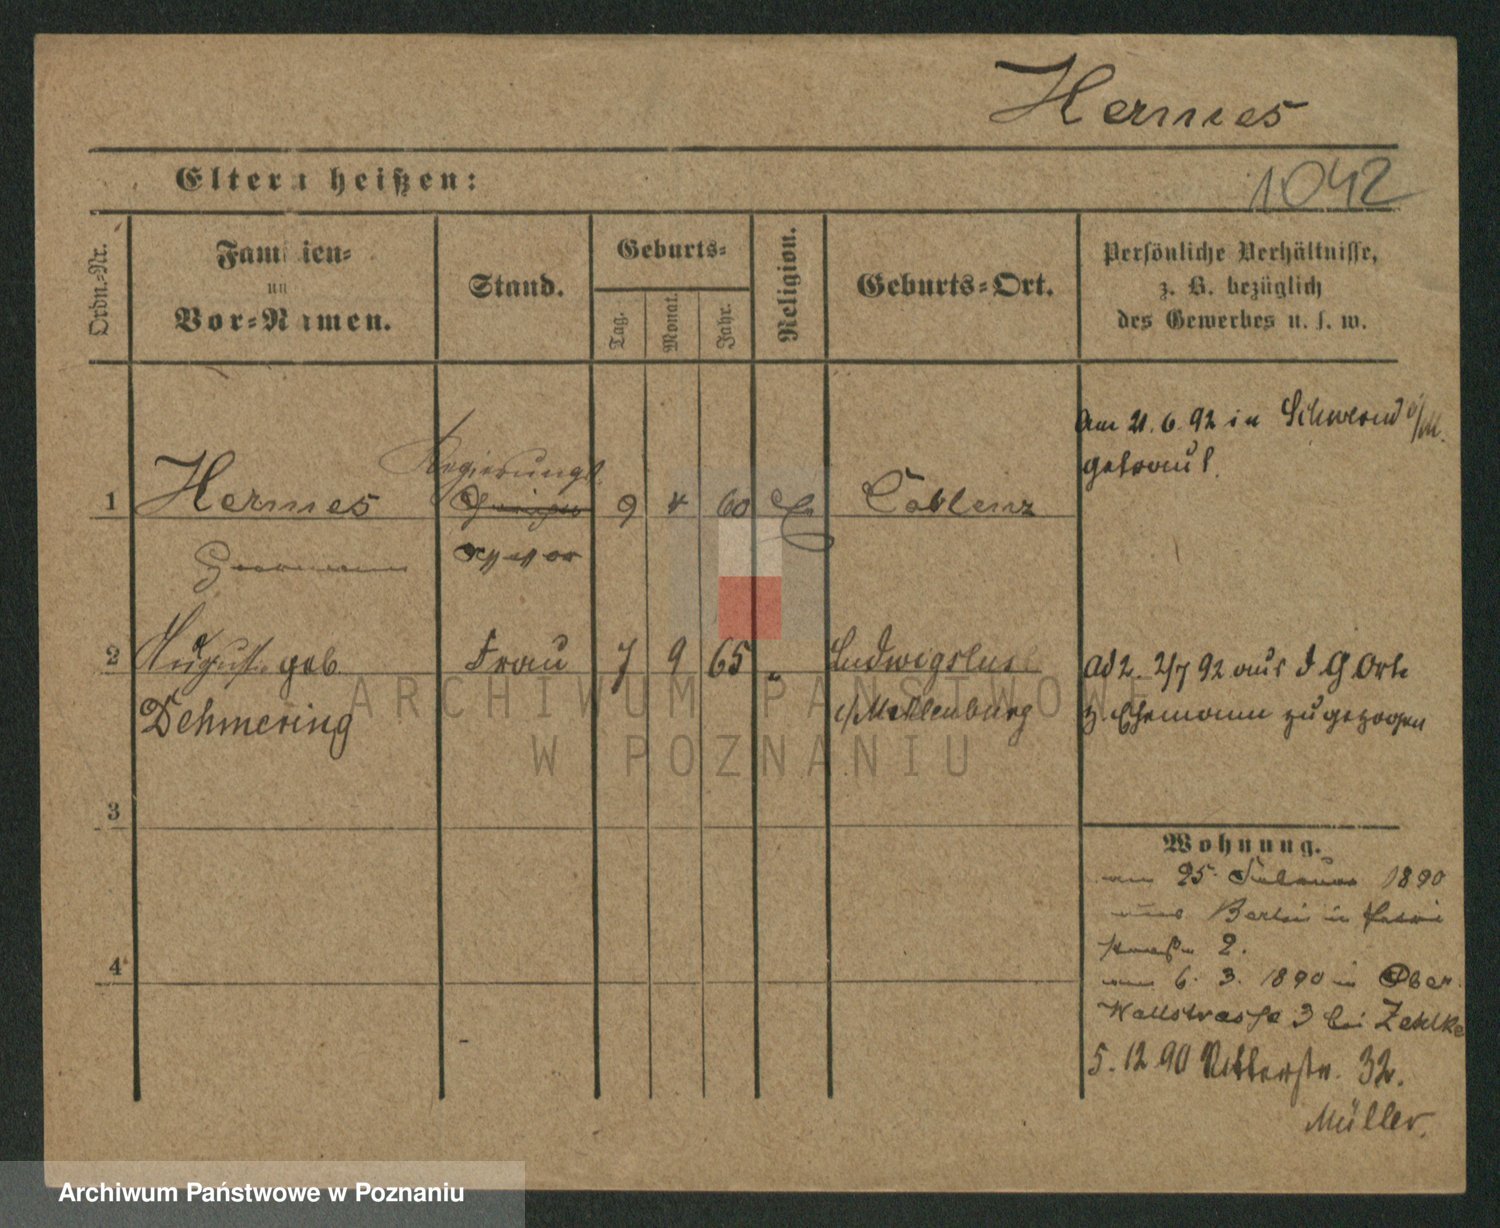 Hermes
1042
Eltern heißen:
Ordn.-Nr.
Familien-
un
Vor-Namen.
Stand.
Geburts-
Tag.
Monat.
Jahr.
Religion.
Geburts-Ort.
Persönliche Verhältnisse,
z. B. bezüglich
des Gewerbes u. s. w.
Am 21. 6. 92 in Schwerin i/M.
getraut.
1 Hermes Regierungs 9 4 60 Ev Coblenz
Hermann Assessor
2 August. geb. Frau 7 9 65 " Ludwigslust
Dehmering i/Mecklenburg
ad 2. 2/7 92 aus d. G Orte
z. Ehemann zugezogen
3
Wohnung.
am 25. Februar 1890
aus Berlin in
straße 2.
4
am 6. 3. 1890 in Ober
Wallstrasse 3 bei Zehlke
5. 12 90 Ritterstr. 32.
Müller.
ARCHIWUM PAŃSTWOWE
W POZNANIU
Archiwum Państwowe w Poznaniu